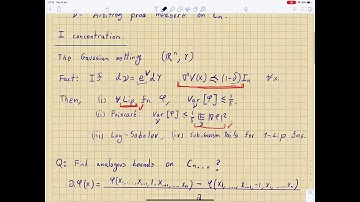 ν - Arbitrary prod measure on Cn.
I concentration.
The Gaussian setting (ℝⁿ, γ)
Fact: If dν = e^V dγ ∇²V(x) ≼ (1-δ) I_n ∀x.
Then, (i) ∀ Lip fn. φ, Var_ν[φ] ≤ 1/δ.
(ii) Poincaré: Var_ν[φ] ≤ 1/δ E|∇φ|²
(iii) Log-Sobolev, (iv) Sub-Gaussian tails for 1-Lip fns.
Q: Find analogous bounds on Cn...?
∂ᵢφ(x) = φ(x₁, ..., xᵢ₋₁, 1, xᵢ₊₁, ..., xₙ) - φ(x₁, ..., xᵢ₋₁, -1, xᵢ₊₁, ..., xₙ)
2